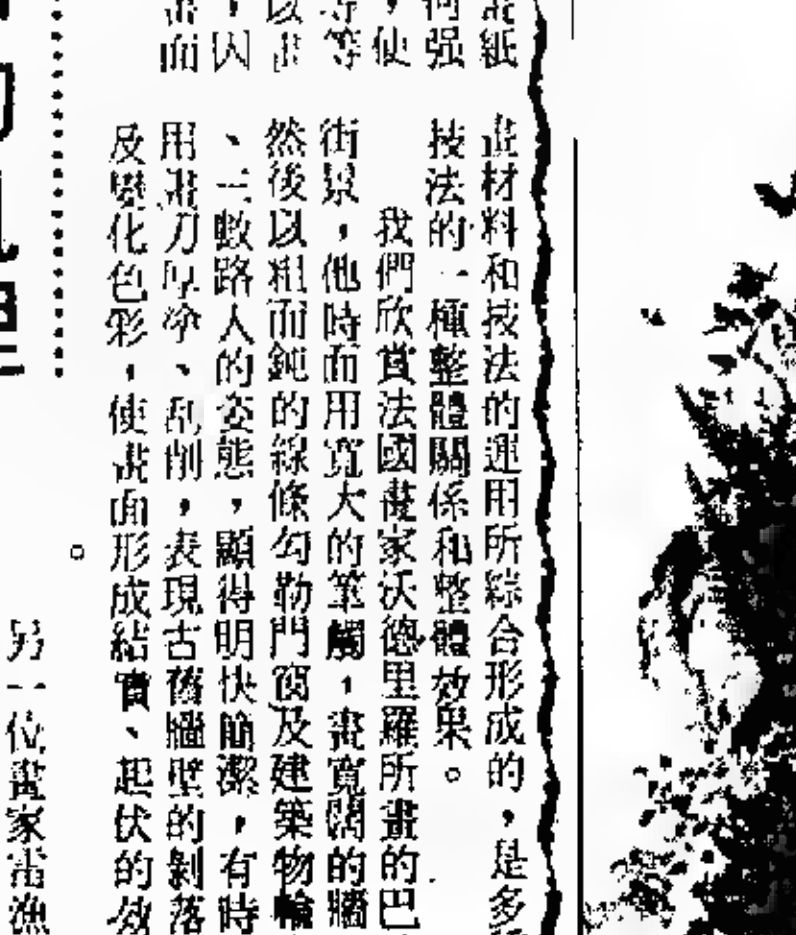 畫紙
畫材料和技法的運用所綜合形成的，是多
何强
技法的一種整體關係和整體效果。
，使
我們欣賞法國畫家沃德里羅所畫的巴
等等
街景，他時而用寬大的筆觸，畫寬闊的牆
以畫
然後以粗而鈍的線條勾勒門窗及建築物輪
，因
、三數路人的姿態，顯得明快簡潔，有時
畫面
用畫刀厚塗、刮削，表現古舊牆壁的剝落
及變化色彩，使畫面形成結實、起伏的效
。
另一位畫家當漁